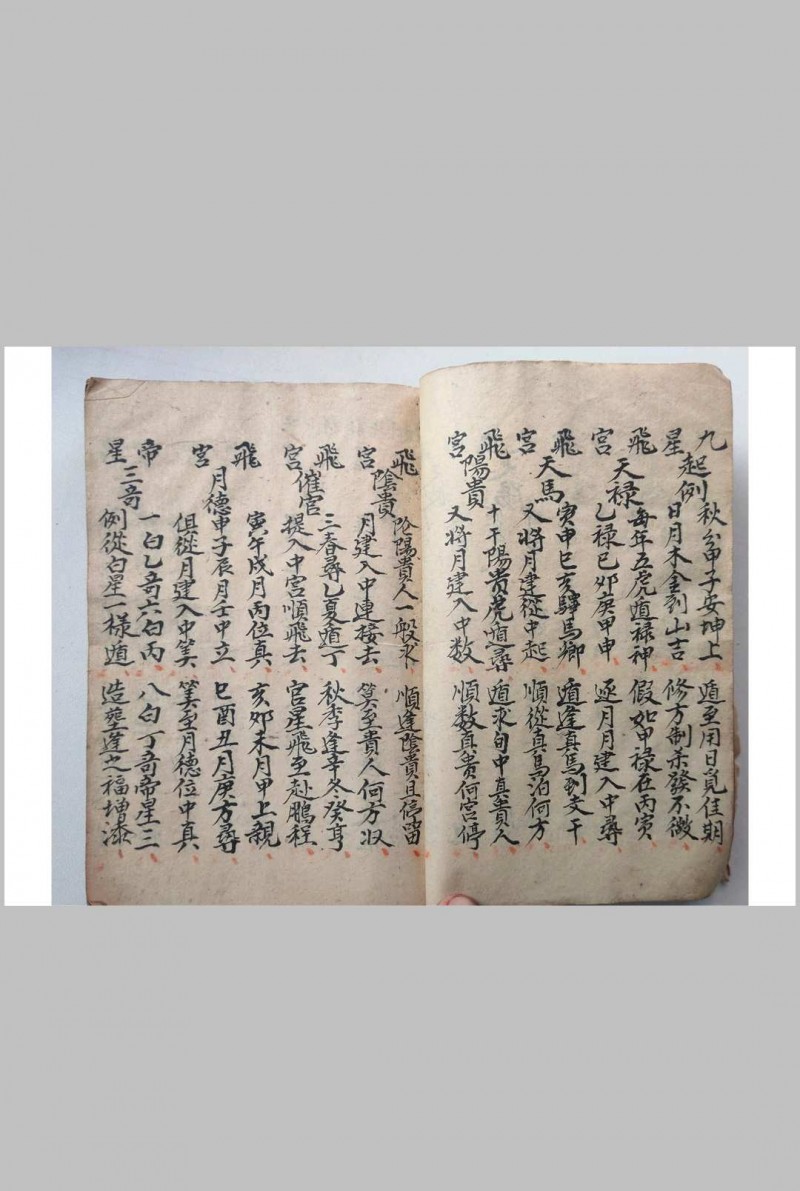 九星起例
秋分甲子安坤上 遁至用日覓佳期
日月木金到山吉 修方制杀發不微
飛宮天禄
每年五虎遁禄神 假如甲禄在丙寅
乙禄巳卯庚甲申 逐月月建入中尋
飛宮天馬
寅申巳亥驛馬鄉 遁逢真馬到支干
又將月建從中起 順從真馬泊何方
飛宮陽貴
十干陽贵虎遁尋 遁求旬中真貴人
又将月建入中数 順数真贵何宮停
飛宮陰貴
陰陽貴人一般求 順逢陰貴且停留
月建入中連接去 筭至貴人何方收
飛宮催官
三春尋乙夏遁丁 秋季逢辛冬癸亨
提入中宮順飛去 宮星飛至赴鵬程
飛宮月德
寅午戌月丙位真 亥卯未月甲上親
申子辰月壬中立 巳酉丑月庚方尋
俱從月建入中筭 筭至月德位中真
帝星三奇
一白乙奇六白丙 八白丁奇帝星三
例從白星一樣遁 造塟逢之福增添